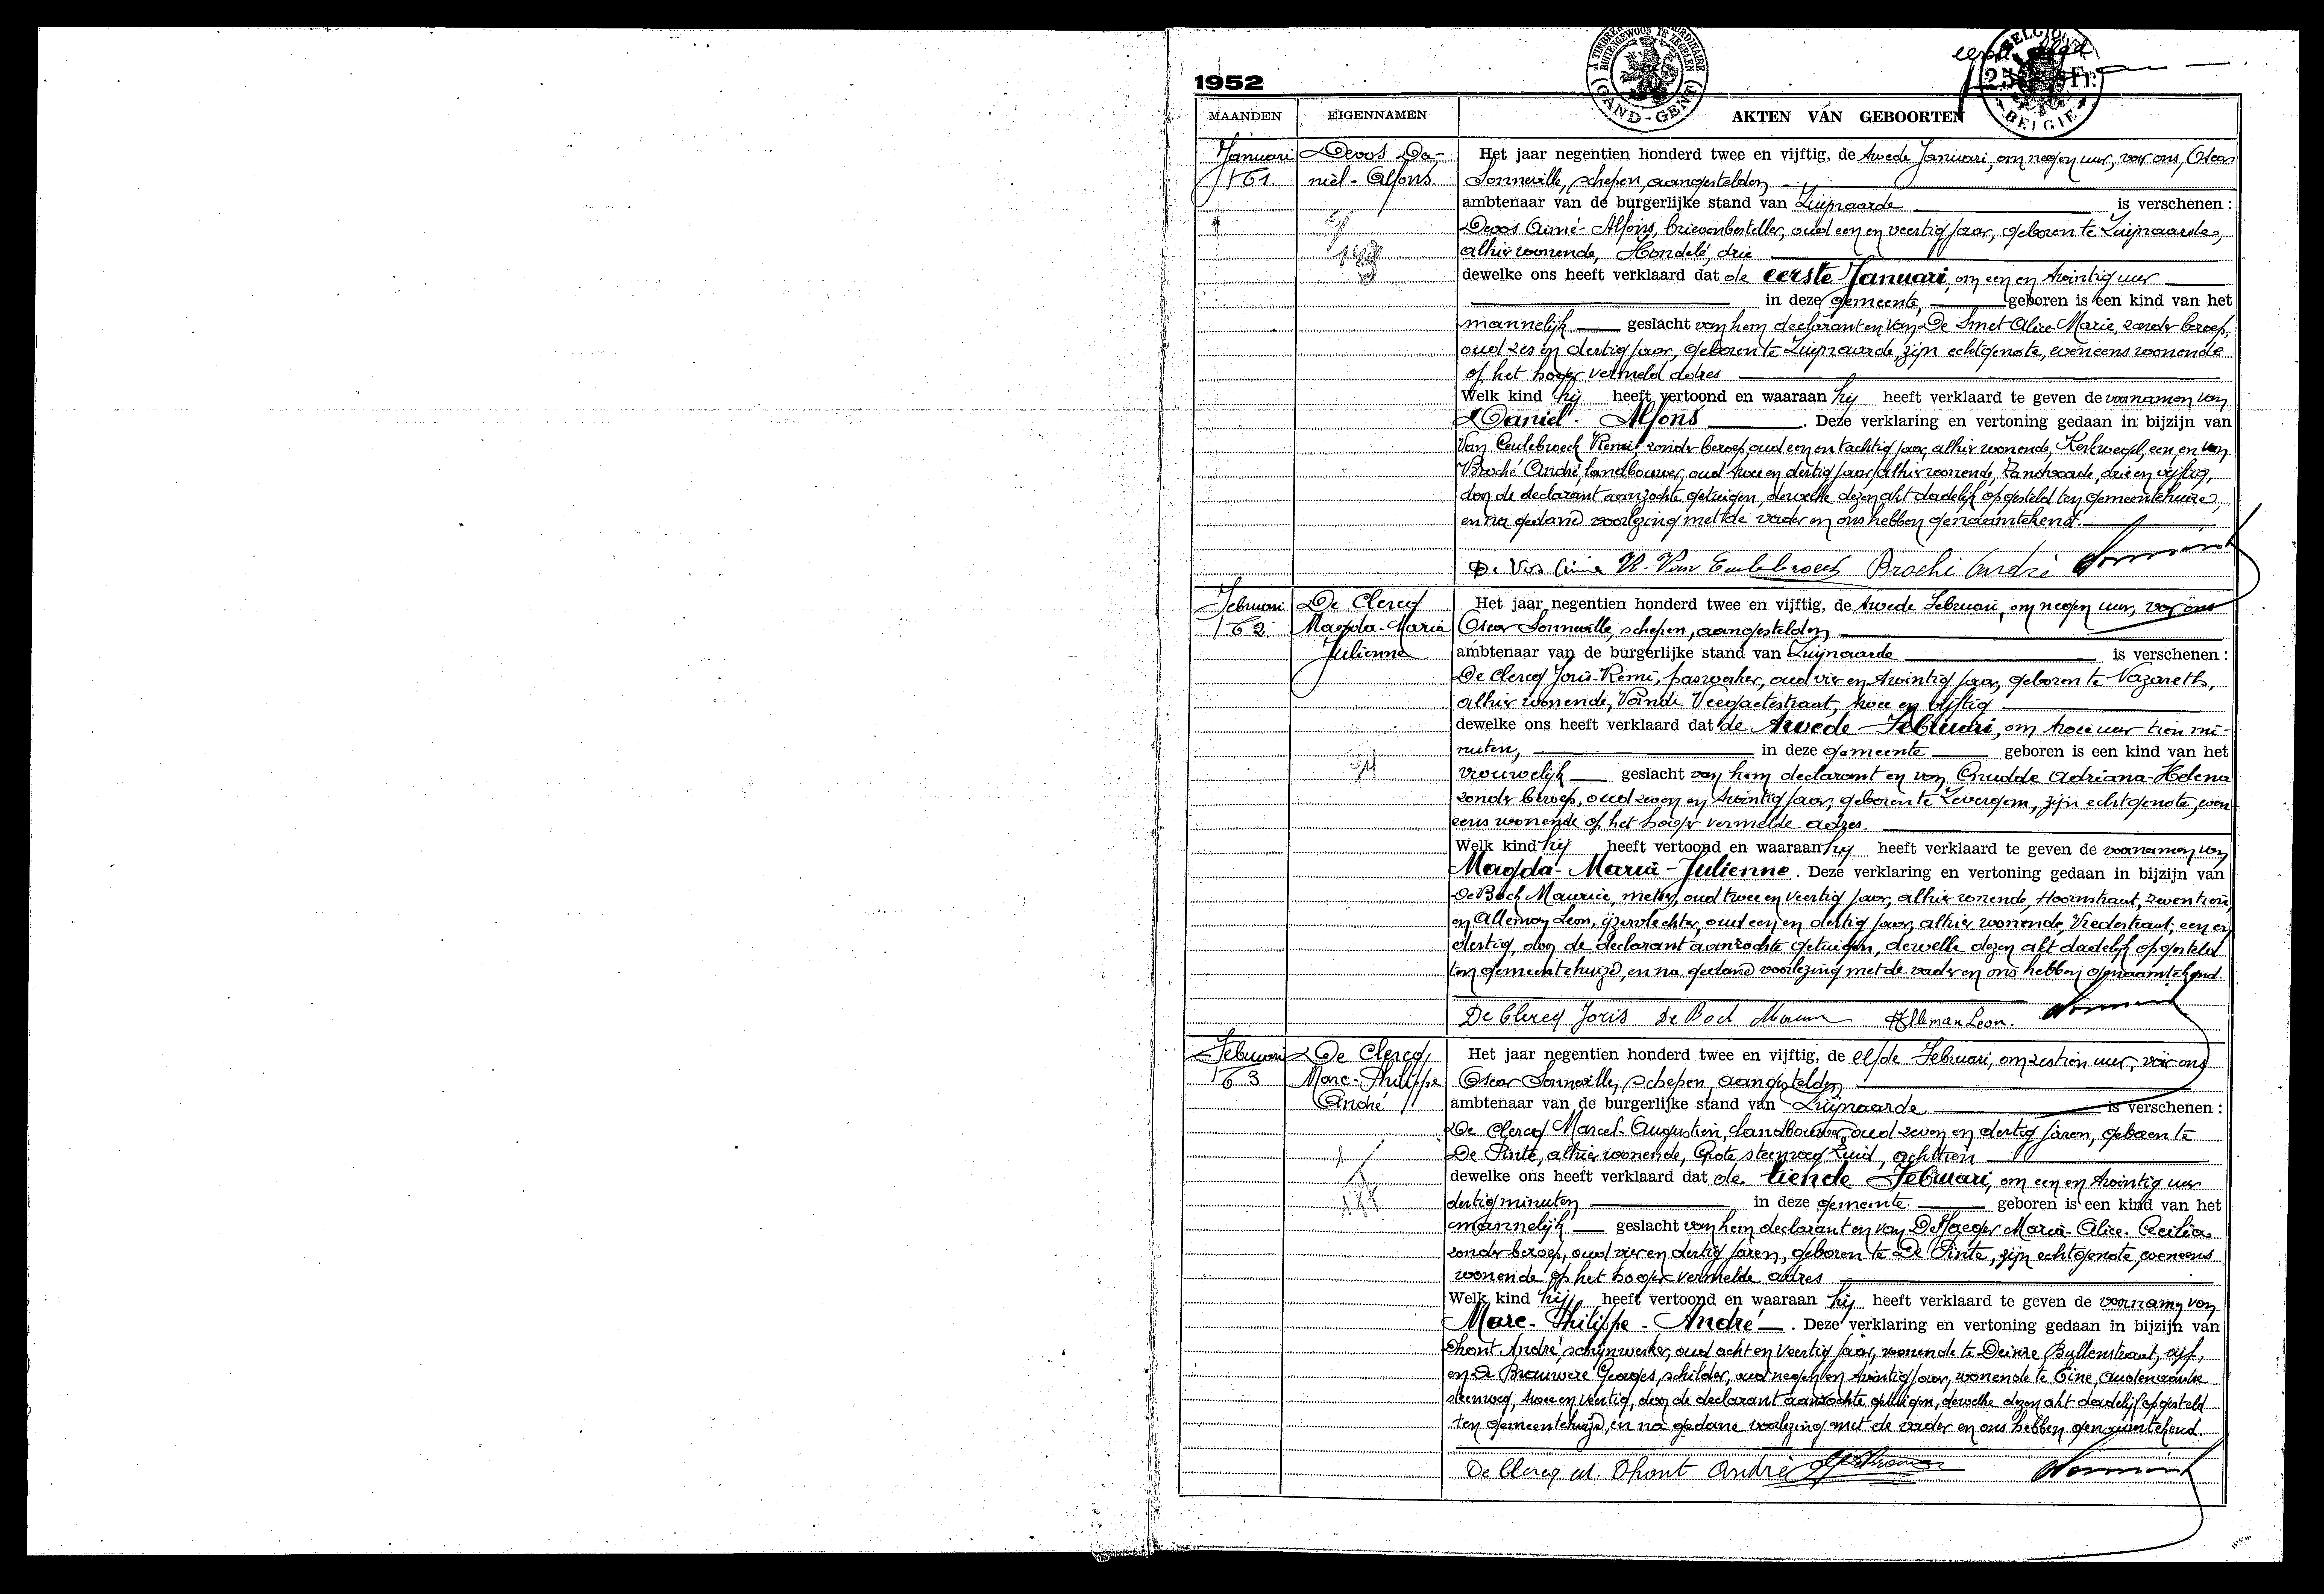 1952
A TIMBRER
BUITENGEWOON TE ZEGELEN
GAND - GENT
eerste blad
BELGIQUE
25 Fr.
BELGIE
MAANDEN
EIGENNAMEN
AKTEN VAN GEBOORTEN
Januari
161
Devos Da-
niël - Alfons
Het jaar negentien honderd twee en vijftig, de twede Januari, om negen uur, voor ons, Oscar
Sonneville, schepen, aangestelden
ambtenaar van de burgerlijke stand van Zwijnaarde is verschenen :
Devos Aimé - Alfons, brievenbesteller, oud een en veertig jaar, geboren te Zwijnaarde,
alhier wonende, Hondelé, drie
dewelke ons heeft verklaard dat de eerste Januari, om een en twintig uur
in deze gemeente, geboren is een kind van het
mannelijk geslacht van hem declarant en van De Smet Alice-Marie, zonder beroep,
oud zes en dertig jaar, geboren te Zwijnaarde, zijn echtgenote, eveneens wonende
op het hoger vermeld adres
Welk kind hij heeft vertoond en waaraan hij heeft verklaard te geven de voornamen van
Daniël - Alfons . Deze verklaring en vertoning gedaan in bijzijn van
Van Ceulebroeck Remi, zonder beroep, oud een en tachtig jaar, alhier wonende, Kerkwegel, een, en van
Broché André, landbouwer, oud twee en dertig jaar, alhier wonende, Zandvoorde, drie en vijftig,
door de declarant aanzochte getuigen, dewelke dezen akt dadelijk opgesteld ten gemeentehuize,
en na gedane voorlezing met de vader en ons hebben genaamtekend.
De Vos Aimé R. Van Ceulebroeck Broché André
Februari
162
De Clercq
Magda-Maria
Julienne
Het jaar negentien honderd twee en vijftig, de twede Februari, om negen uur, voor ons
Oscar Sonneville, schepen, aangestelden
ambtenaar van de burgerlijke stand van Zwijnaarde is verschenen :
De Clercq Joris-Remi, paswerker, oud vier en twintig jaar, geboren te Nazareth,
alhier wonende, Voinde Veegaetestraat, twee en vijftig
dewelke ons heeft verklaard dat de twede Februari, om twee uur tien mi-
nuten, in deze gemeente geboren is een kind van het
vrouwelijk geslacht van hem declarant en van Crudde Adriana-Helena
zonder beroep, oud zeven en twintig jaar, geboren te Zevergem, zijn echtgenote, even-
eens wonende op het hoger vermelde adres.
Welk kind hij heeft vertoond en waaraan hij heeft verklaard te geven de voornamen van
Magda - Maria - Julienne . Deze verklaring en vertoning gedaan in bijzijn van
De Bock Maurice, metser, oud twee en veertig jaar, alhier wonende, Hoornstraat, zeventien,
en Alleman Leon, ijzervlechter, oud een en dertig jaar, alhier wonende, Vredestraat, een en
dertig, door de declarant aanzochte getuigen, dewelke dezen akt dadelijk opgesteld
ten gemeentehuize, en na gedane voorlezing met de vader en ons hebben genaamtekend
De Clercq Joris De Bock Maurice Alleman Leon.
Februari
163
De Clercq
Marc-Philippe
André
Het jaar negentien honderd twee en vijftig, de elfde Februari, om zestien uur, voor ons
Oscar Sonneville, schepen, aangestelden
ambtenaar van de burgerlijke stand van Zwijnaarde is verschenen :
De Clercq Marcel-Augustien, landbouwer, oud zeven en dertig jaren, geboren te
De Pinte, alhier wonende, Grote steenweg Zuid, achttien
dewelke ons heeft verklaard dat de tiende Februari, om een en twintig uur
dertig minuten in deze gemeente geboren is een kind van het
mannelijk geslacht van hem declarant en van De Jaeger Maria-Alice-Cecilia
zonder beroep, oud vier en dertig jaren, geboren te De Pinte, zijn echtgenote, eveneens
wonende op het hoger vermelde adres
Welk kind hij heeft vertoond en waaraan hij heeft verklaard te geven de voornamen van
Marc - Philippe - André . Deze verklaring en vertoning gedaan in bijzijn van
Dhont André, schrijnwerker, oud acht en veertig jaar, wonende te Deinze, vijf,
en De Brouwere Georges, schilder, oud negen en twintig jaar, wonende te Eine, Oudenaardse
steenweg, twee en veertig, door de declarant aanzochte getuigen, dewelke dezen akt dadelijk opgesteld
ten gemeentehuize, en na gedane voorlezing met de vader en ons hebben genaamtekend.
De Clercq M. Dhont André